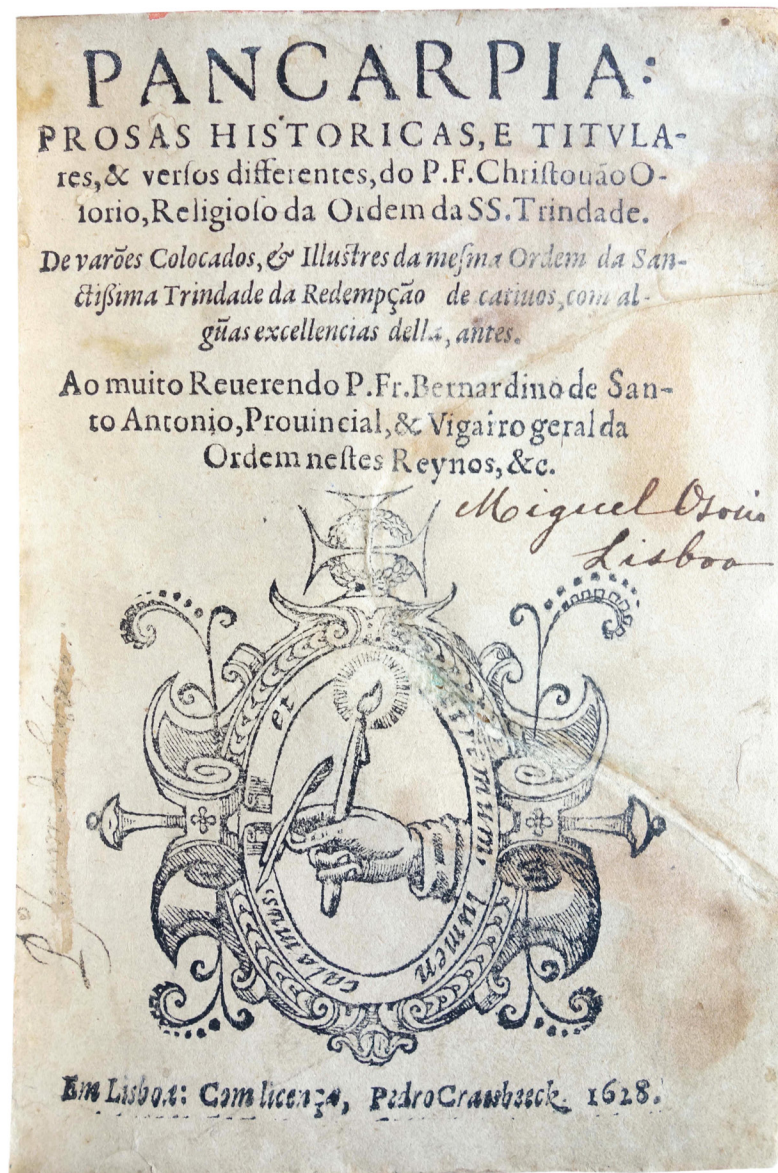 PANCARPIA:
PROSAS HISTORICAS, E TITVLA-
res, & verſos differentes, do P.F. Chriſtouão O-
ſorio, Religioſo da Ordem da SS. Trindade.
De varões Colocados, & Illuſtres da meſma Ordem da San-
ctißima Trindade da Redempção de catiuos, com al-
gũas excellencias della, antes.
Ao muito Reuerendo P.Fr. Bernardino de San-
to Antonio, Prouincial, & Vigairo geral da
Ordem neſtes Reynos, &c.
Miguel Osorio
Lisboa
et
lumen
calamus.
Em Lisboa: Com licença, Pedro Craesbeeck. 1628.